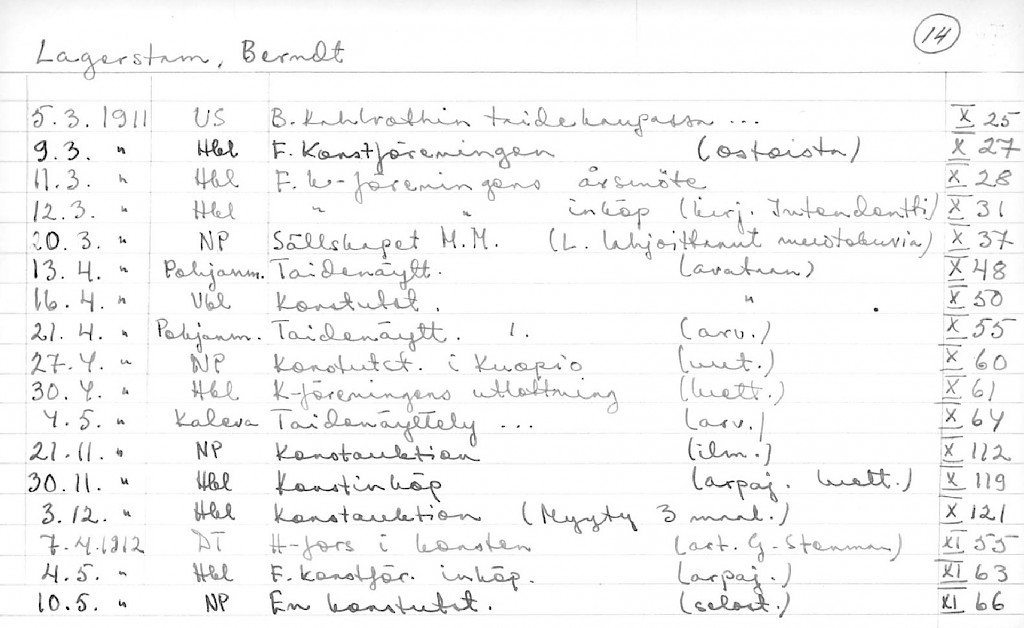 14
Lagerstam, Berndt
5.3. 1911 US B. Kahlrothin taidekaupassa ... X 25
9.3. " Hbl F. Konstföreningen (ostoista) X 27
11.3. " Hbl F. k-föreningens årsmöte X 28
12.3. " Hbl " " inköp (kirj. Intendentti) X 31
20.3. " NP Sällskapet M.M. (L. lahjoittanut muotokuvia) X 37
13.4. " Pohjanm. Taidenäytt. (avataan) X 48
16.4. " Vbl Konstutst. " X 50
21.4. " Pohjanm. Taidenäytt. 1. (arv.) X 55
27.4. " NP Konstutst. i Kuopio (uut.) X 60
30.4. " Hbl K-föreningens utlottning (luett.) X 61
4.5. " Kaleva Taidenäyttely ... (arv.) X 64
21.11. " NP Konstauktion (ilm.) X 112
30.11. " Hbl Konstinköp (arpaj. luett.) X 119
3.12. " Hbl Konstauktion (Myyty 3 maal.) X 121
7.4.1912 DT H-fors i konsten (art. G. Stenman) XI 55
4.5. " Hbl F. Konstför. inköp. (arpaj.) XI 63
10.5. " NP En konstutst. (selost.) XI 66